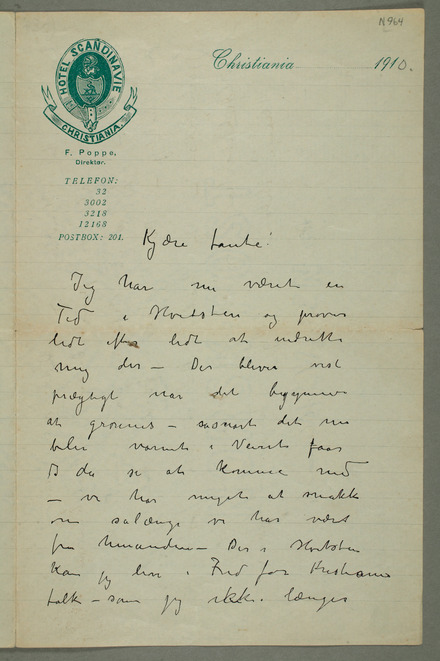 N 964
HOTEL SCANDINAVIE
CHRISTIANIA.
Christiania 1910.
F. Poppe,
Direktør.
TELEFON:
32
3002
3218
12168
POSTBOX: 201.
Kjære Tante!
Jeg har nu været en
Tid i Hvidsten og prøver
lidt efter lidt at indrette
mig der – Der bliver vist
prægtigt nar det begynner
at grønnes – saasnart det nu
blir varmt i Veiret faar
Du se at komme ned
– vi har meget at snakke
om salænge vi har vært
fra hinanden – Der i Hvidsten
kan jeg leve i Fred for Kristiania
folk – som jeg ikke længer